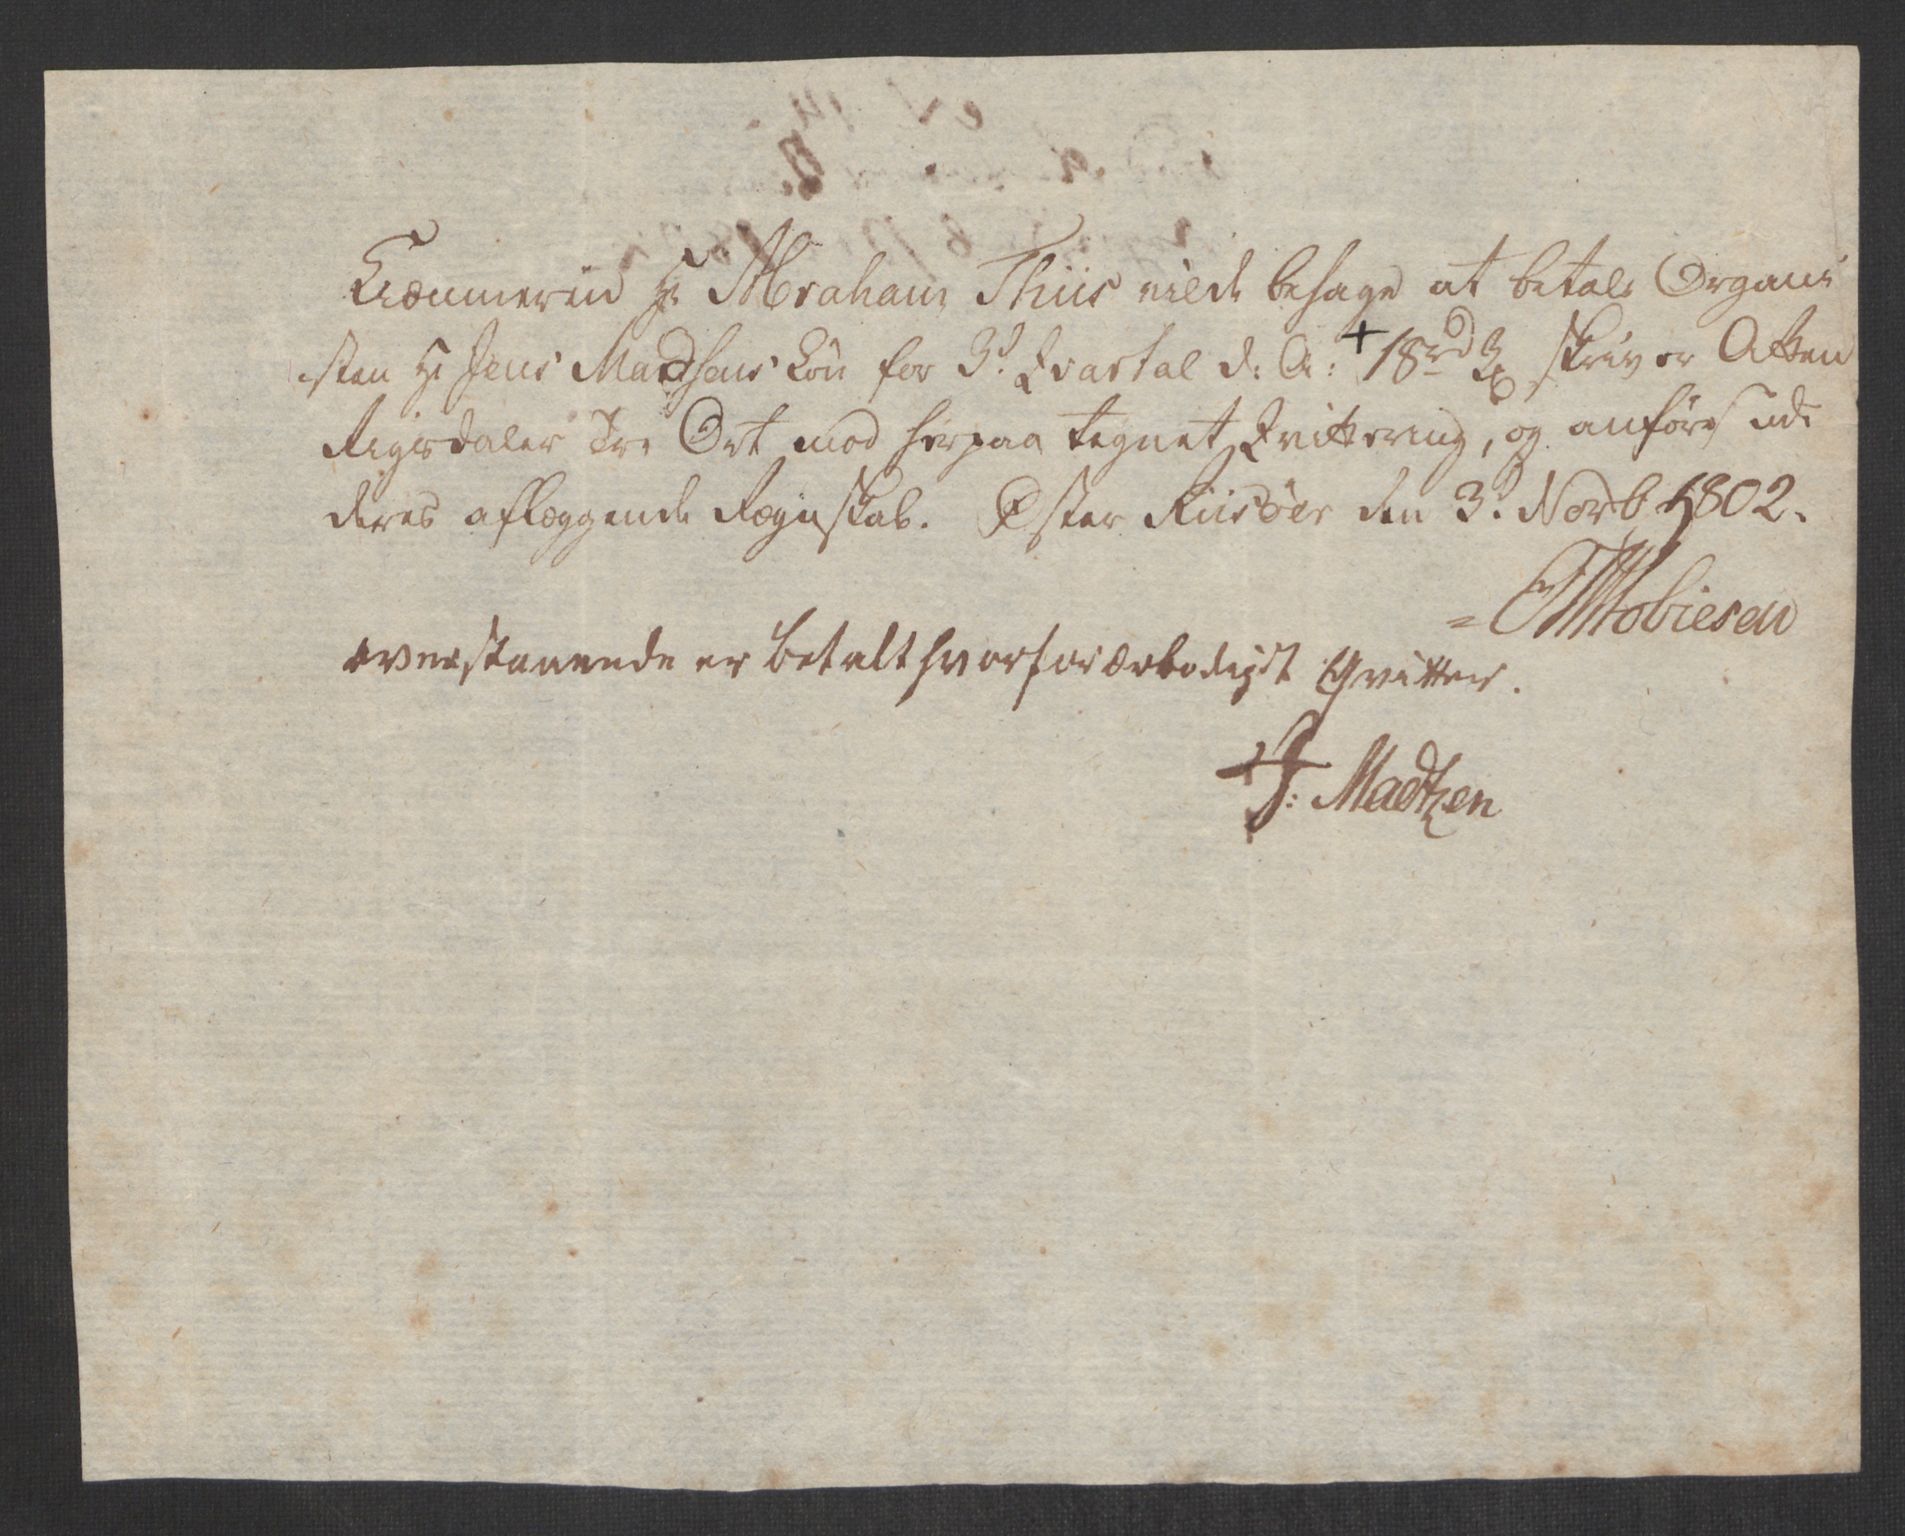 Kiæmneren Hr Abraham Thiis vilde behage at betale Organi
sten Hr Jens Madsens Løn for 3d Qvartal d: A: + 18rd 3 skriver Atten
Rigsdaler Tre Ort mod herpaa tegnet Qvittering, og anføres udi
deres aflæggende Regnskab. Øster Riisøer den 3d Novb 1802.
Tobiesen
ovenstaaende er betalt hvorfor ærbødigst Qvitter.
J: Madtzen